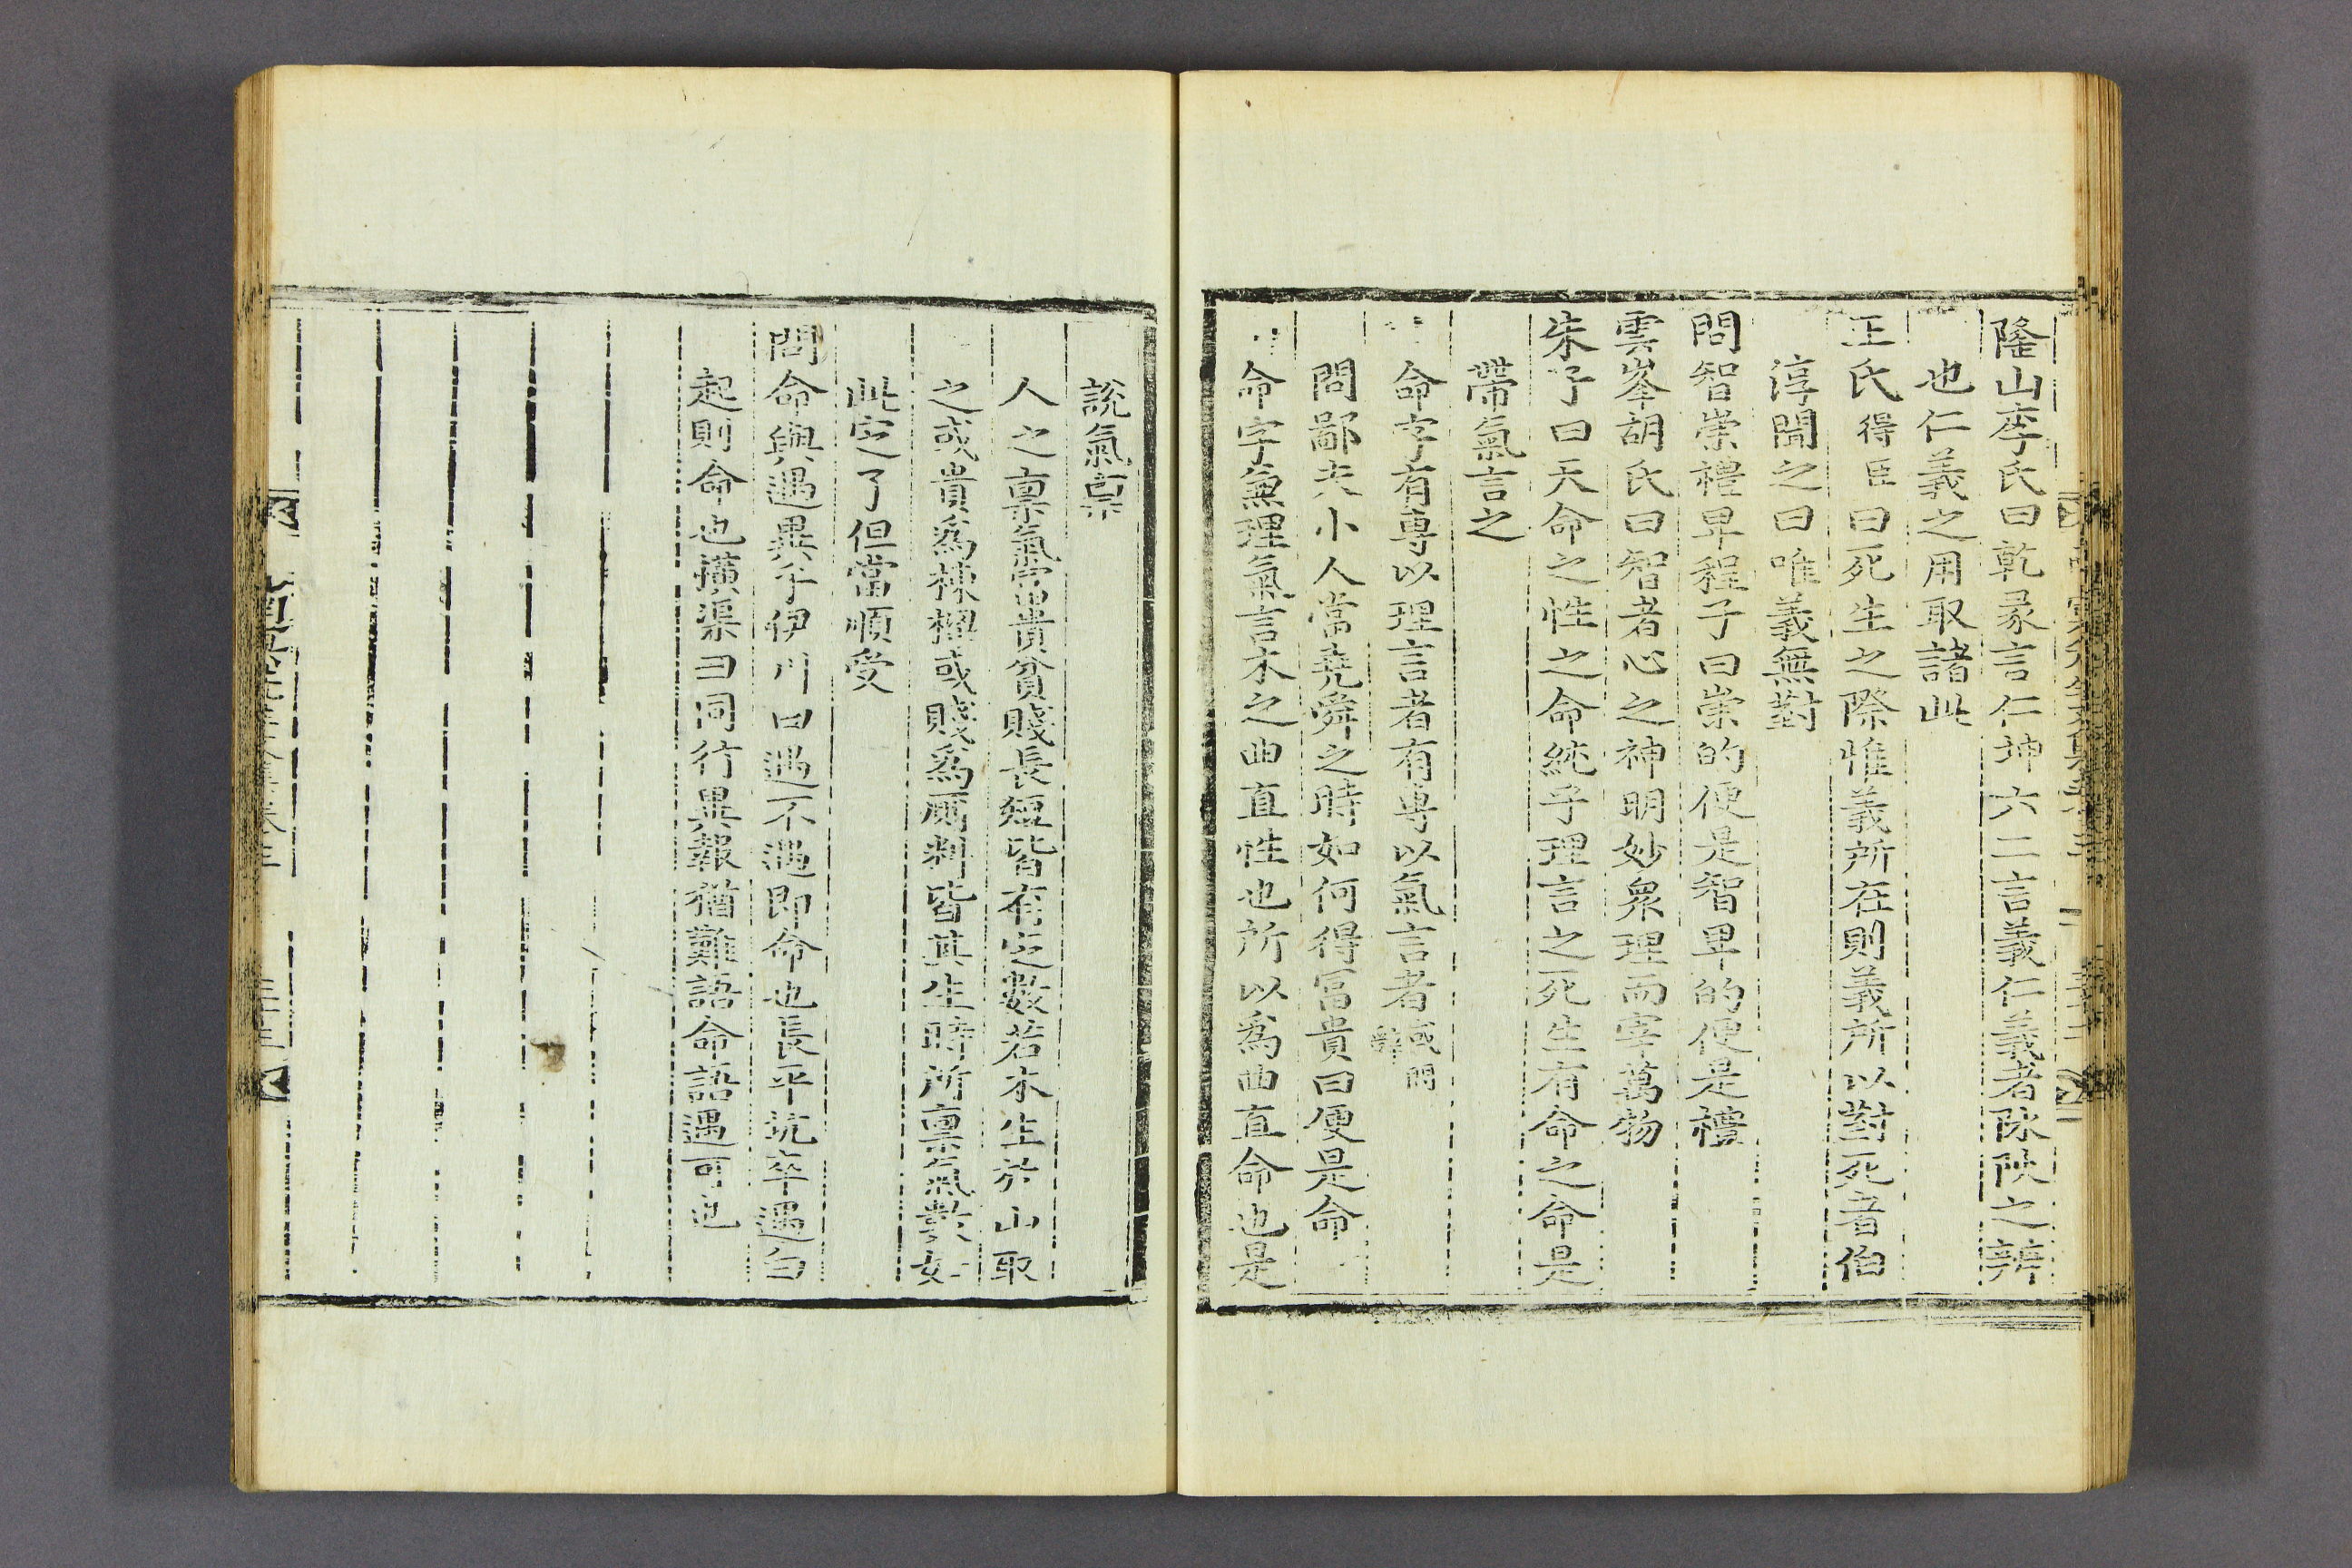 隆山李氏曰乾彖言仁坤六二言義仁義者陰陽之辨
也仁義之用取諸此
王氏得臣曰死生之際惟義所在則義所以對死者伯
淳聞之曰唯義無對
問智崇禮卑程子曰崇的便是智卑的便是禮
雲峯胡氏曰智者心之神明妙衆理而宰萬物
朱子曰天命之性之命純乎理言之死生有命之命是
帶氣言之
命字有專以理言者有專以氣言者
問鄙夫小人當堯舜之時如何得冨貴曰便是命
命字兼理氣言木之曲直性也所以爲曲直命也是
說氣禀
人之禀氣冨貴貧賤長短皆有定數若木生於山取
之或貴爲棟樑或賤爲厠料皆其生時所禀氣數如
此定了但當順受
問命與遇異乎伊川曰遇不遇即命也長平坑卒遇白
起則命也橫渠曰同行異報猶難語命語遇可也